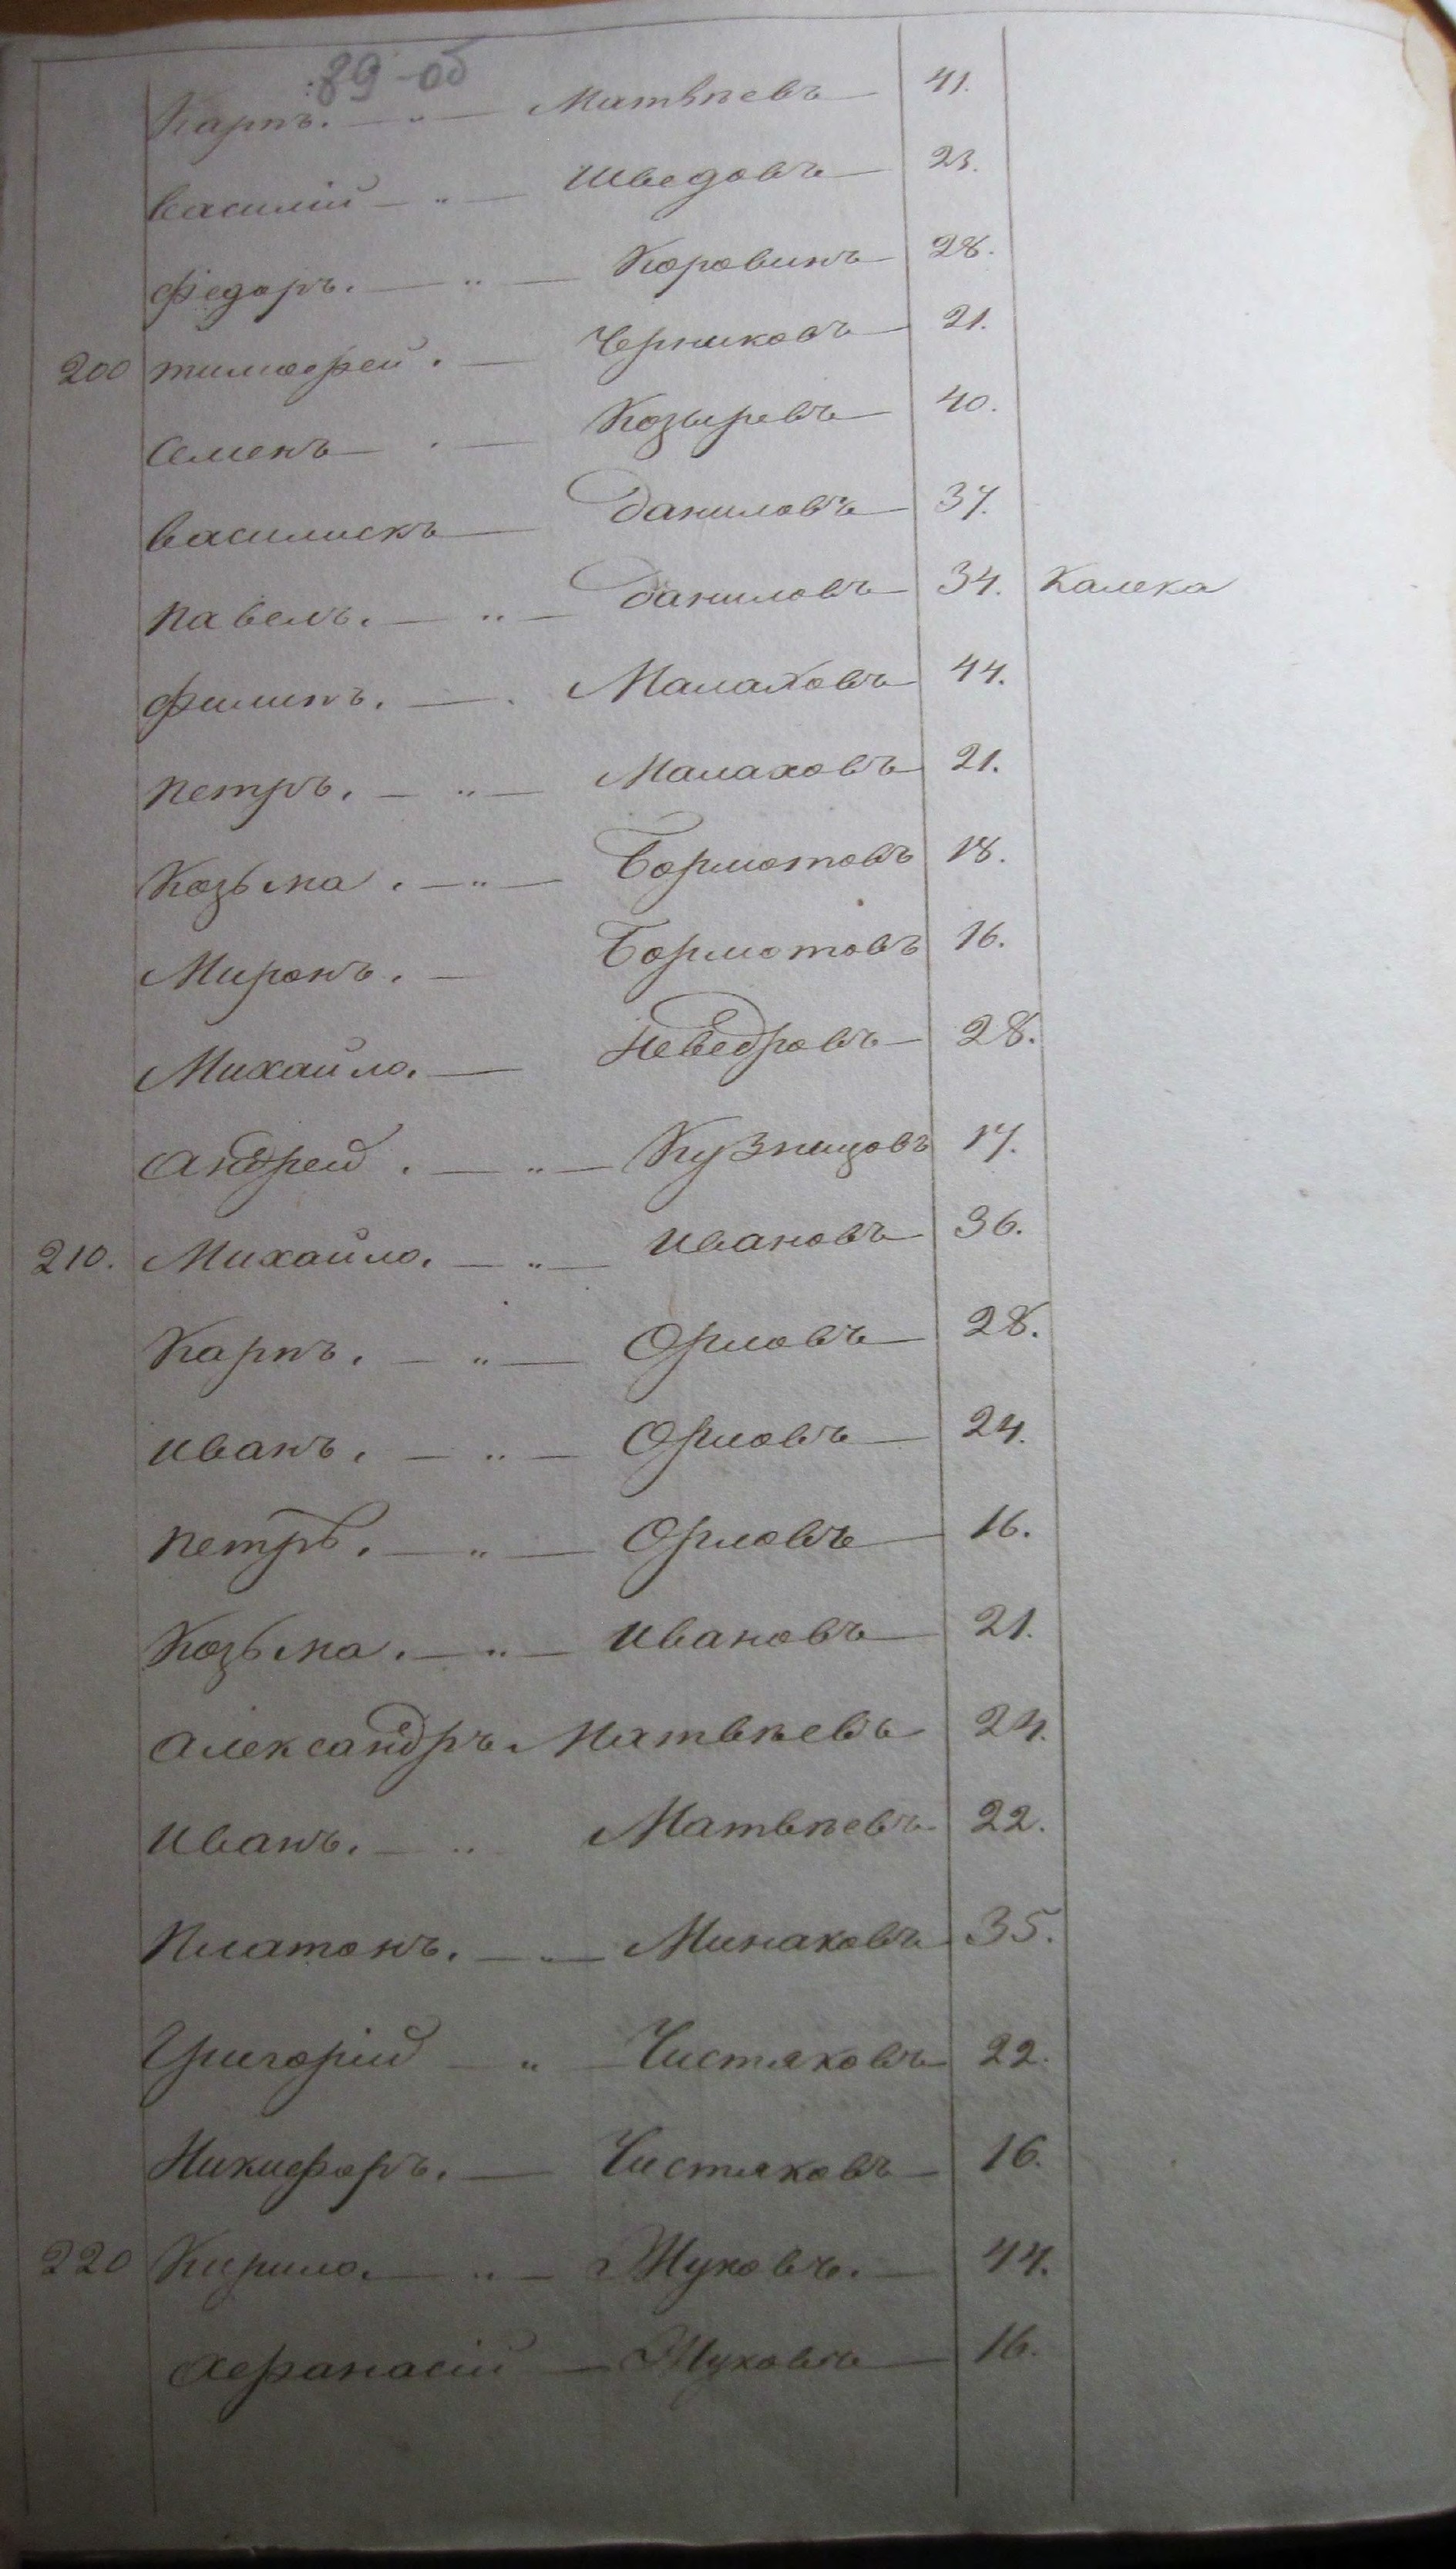 89-об
Карпъ. — " — Матвѣевъ — 41.
Василій — " — Шведовъ — 23.
Федоръ. — " — Коровинъ — 28.
200 Тимофей. — Черниковъ — 21.
Семенъ — . — Козыревъ — 40.
Василискъ — Даниловъ — 37.
Павелъ. — " — Даниловъ — 34. Калека
Филипъ. — . Малаховъ — 44.
Петръ. — " — Малаховъ — 21.
Козьма. — " — Бормотовъ 18.
Миронъ. — Бормотовъ 16.
Михайло. — Неведровъ — 28.
Андрей. — " — Кузницовъ 17.
210. Михайло. — " — Ивановъ — 36.
Карпъ. — " — Орловъ — 28.
Иванъ. — " — Орловъ — 24.
Петръ. — " — Орловъ — 16.
Козьма. — " — Ивановъ — 21.
Александръ. Матвѣевъ 24.
Иванъ. — " Матвѣевъ 22.
Платонъ. — " — Минаковъ 35.
Григорій — " — Чистяковъ 22.
Никифоръ. — Чистяковъ — 16.
220 Кирило. — " — Жуковъ. — 44.
Афанасій — Жуковъ — 16.